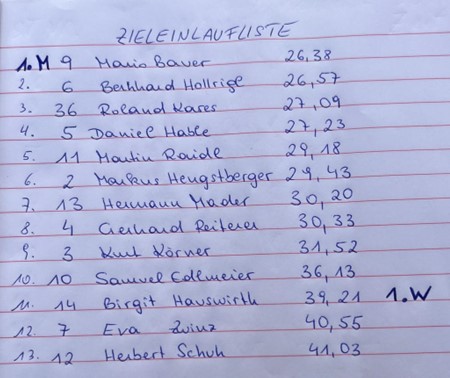 ZIELEINLAUFLISTE
1. M 9 Mario Bauer 26,38
2. 6 Bernhard Hollrigl 26,57
3. 36 Roland Kares 27,09
4. 5 Daniel Hable 27,23
5. 11 Martin Raidl 29,18
6. 2 Markus Hengstberger 29,43
7. 13 Hermann Mader 30,20
8. 4 Gerhard Reiterer 30,33
9. 3 Kurt Körner 31,52
10. 10 Samuel Edlmeier 36,13
11. 14 Birgit Hauswirth 39,21 1. W
12. 7 Eva Zwinz 40,55
13. 12 Herbert Schuh 41,03